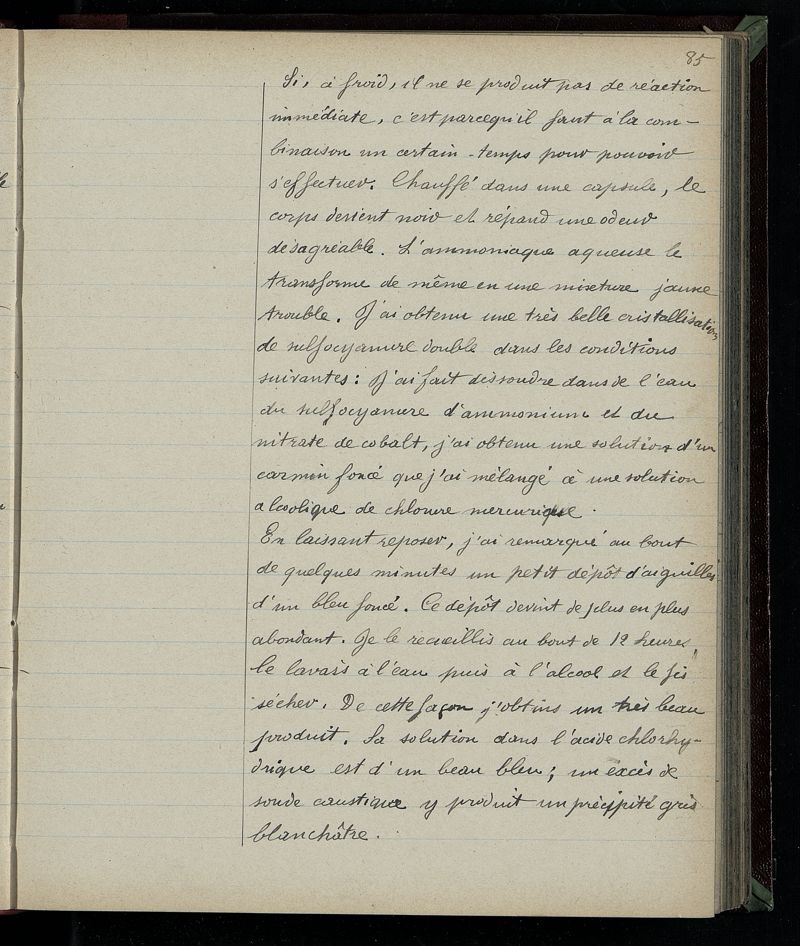 85
Si, à froid, il ne se produit pas de réaction
immédiate, c'est parcequ'il faut à la com-
binaison un certain temps pour pouvoir
s'effectuer. Chauffé dans une capsule, le
corps devient noir et répand une odeur
désagréable. L'ammoniaque aqueuse le
transforme de même en une mixture jaune
trouble. J'ai obtenu une très belle cristallisation
de sulfocyanure double dans les conditions
suivantes: J'ai fait dissoudre dans de l'eau
du sulfocyanure d'ammonium et du
nitrate de cobalt, j'ai obtenu une solution d'un
carmin foncé que j'ai mélangé à une solution
alcoolique de chlorure mercurique.
En laissant reposer, j'ai remarqué au bout
de quelques minutes un petit dépôt d'aiguilles
d'un bleu foncé. Ce dépôt devint de plus en plus
abondant. Je le recueillis au bout de 12 heures,
le lavais à l'eau puis à l'alcool et le fis
sécher. De cette façon j'obtins un très beau
produit. Sa solution dans l'acide chlorhy-
drique est d'un beau bleu; un excès de
soude caustique y produit un précipité gris
blanchâtre.